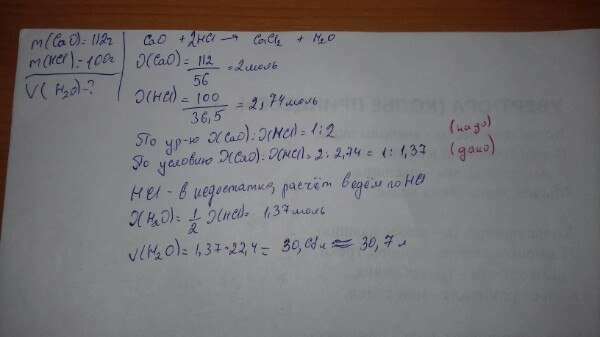 m(CaO)=112г
m(HCl)=100г
V(H₂O)-?
CaO + 2HCl → CaCl₂ + H₂O
ϑ(CaO)=112/56=2моль
ϑ(HCl)=100/36,5=2,74моль
По ур-ю ϑ(CaO):ϑ(HCl)=1:2 (надо)
По условию ϑ(CaO):ϑ(HCl)=2:2,74=1:1,37 (дано)
HCl - в недостатке, расчёт ведём по HCl
ϑ(H₂O)=1/2 ϑ(HCl)= 1,37моль
V(H₂O)=1,37*22,4= л ≈ 30,7 л